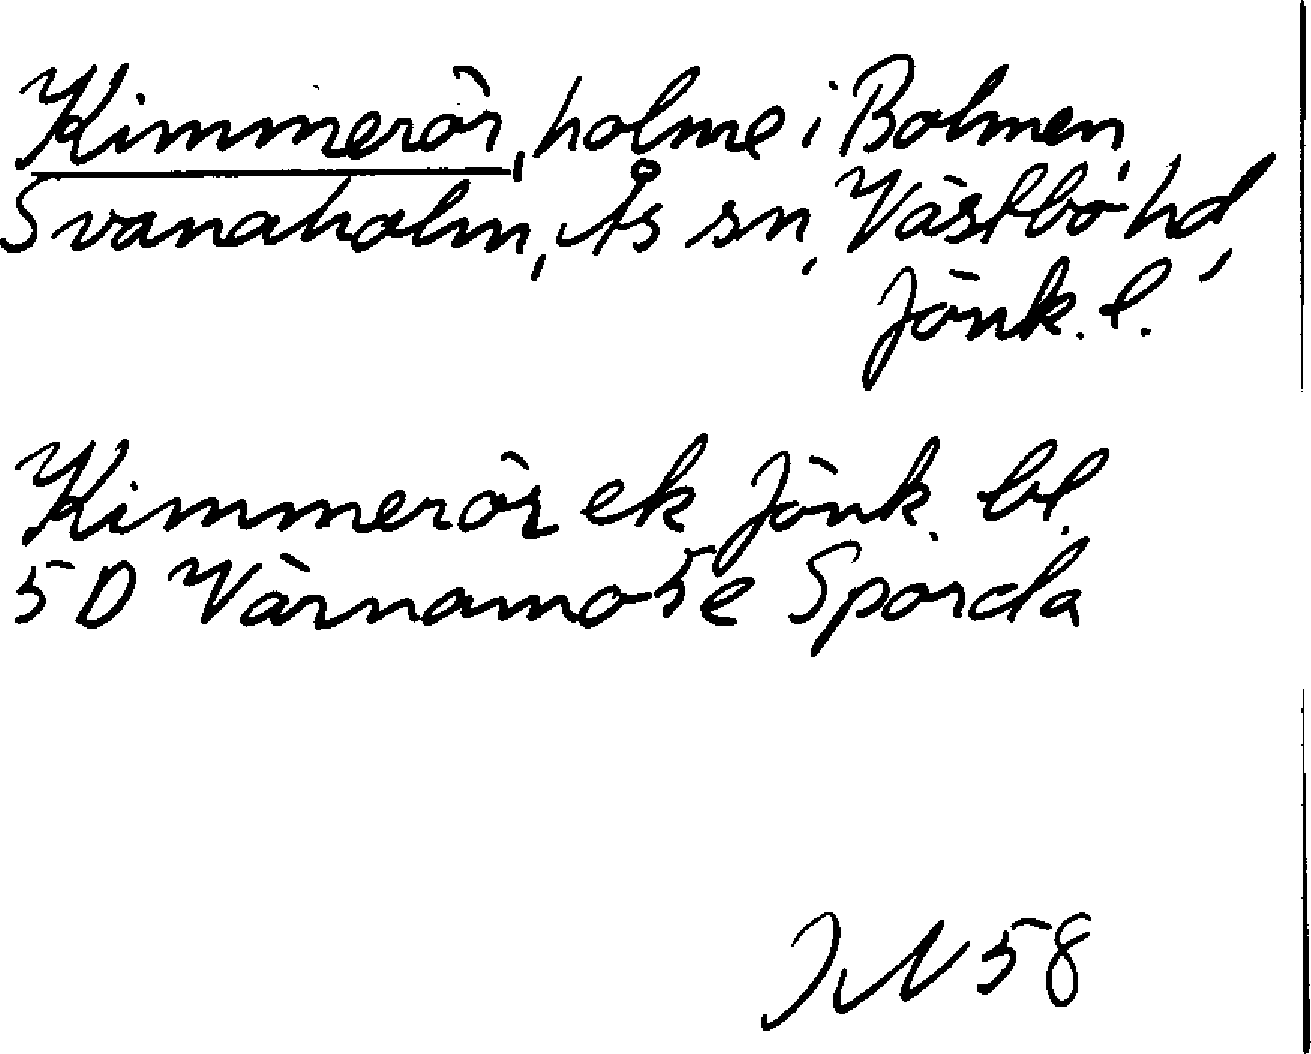 Kimmerör, holme i Bolmen,
Svanaholm, Ås sn, Västbo hd,
Jönk. l.
Kimmerör ek Jönk. bl.
5D Värnamo 5e Sporda
58